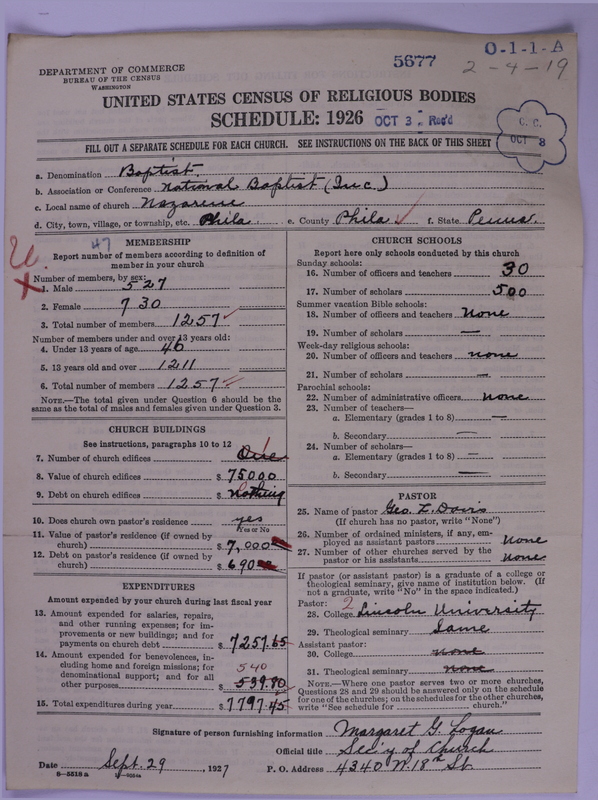 5677
O-1-1-A
2-4-19
DEPARTMENT OF COMMERCE
BUREAU OF THE CENSUS
WASHINGTON
UNITED STATES CENSUS OF RELIGIOUS BODIES
SCHEDULE: 1926 OCT 3 Rec'd
C. C.
OCT 8
FILL OUT A SEPARATE SCHEDULE FOR EACH CHURCH. SEE INSTRUCTIONS ON THE BACK OF THIS SHEET
a. Denomination Baptist
b. Association or Conference National Baptist (Inc.)
c. Local name of church Nazarene
d. City, town, village, or township, etc. Phila. e. County Phila f. State Penna.
47
MEMBERSHIP
Report number of members according to definition of member in your church
Number of members, by sex:
1. Male 527
2. Female 730
3. Total number of members 1257
Number of members under and over 13 years old:
4. Under 13 years of age 46
5. 13 years old and over 1211
6. Total number of members 1257
NOTE.—The total given under Question 6 should be the same as the total of males and females given under Question 3.
CHURCH BUILDINGS
See instructions, paragraphs 10 to 12
7. Number of church edifices One
8. Value of church edifices $ 75000
9. Debt on church edifices $ Nothing
10. Does church own pastor's residence yes
Yes or No
11. Value of pastor's residence (if owned by church) $ 7,000
12. Debt on pastor's residence (if owned by church) $ 690
EXPENDITURES
Amount expended by your church during last fiscal year
13. Amount expended for salaries, repairs, and other running expenses; for improvements or new buildings; and for payments on church debt $ 7257.65
14. Amount expended for benevolences, including home and foreign missions; for denominational support; and for all other purposes $ 539.80
540
15. Total expenditures during year $ 7797.45
CHURCH SCHOOLS
Report here only schools conducted by this church
Sunday schools:
16. Number of officers and teachers 30
17. Number of scholars 500
Summer vacation Bible schools:
18. Number of officers and teachers None
19. Number of scholars —
Week-day religious schools:
20. Number of officers and teachers none
21. Number of scholars —
Parochial schools:
22. Number of administrative officers none
23. Number of teachers—
a. Elementary (grades 1 to 8) —
b. Secondary —
24. Number of scholars—
a. Elementary (grades 1 to 8) —
b. Secondary —
PASTOR
25. Name of pastor Geo. L. Davis
(If church has no pastor, write "None")
26. Number of ordained ministers, if any, employed as assistant pastors None
27. Number of other churches served by the pastor or his assistants None
If pastor (or assistant pastor) is a graduate of a college or theological seminary, give name of institution below. (If not a graduate, write "No" in the space indicated.)
Pastor:
2
28. College Lincoln University
29. Theological seminary Same
Assistant pastor:
30. College none
31. Theological seminary none
NOTE.—Where one pastor serves two or more churches, Questions 28 and 29 should be answered only on the schedule for one of the churches; on the schedules for the other churches, write "See schedule for church."
Signature of person furnishing information Margaret G. Logan
Official title Sec'y of Church
Date Sept. 29, 1927 P. O. Address 4340 W. 18th St.
8—5518 a